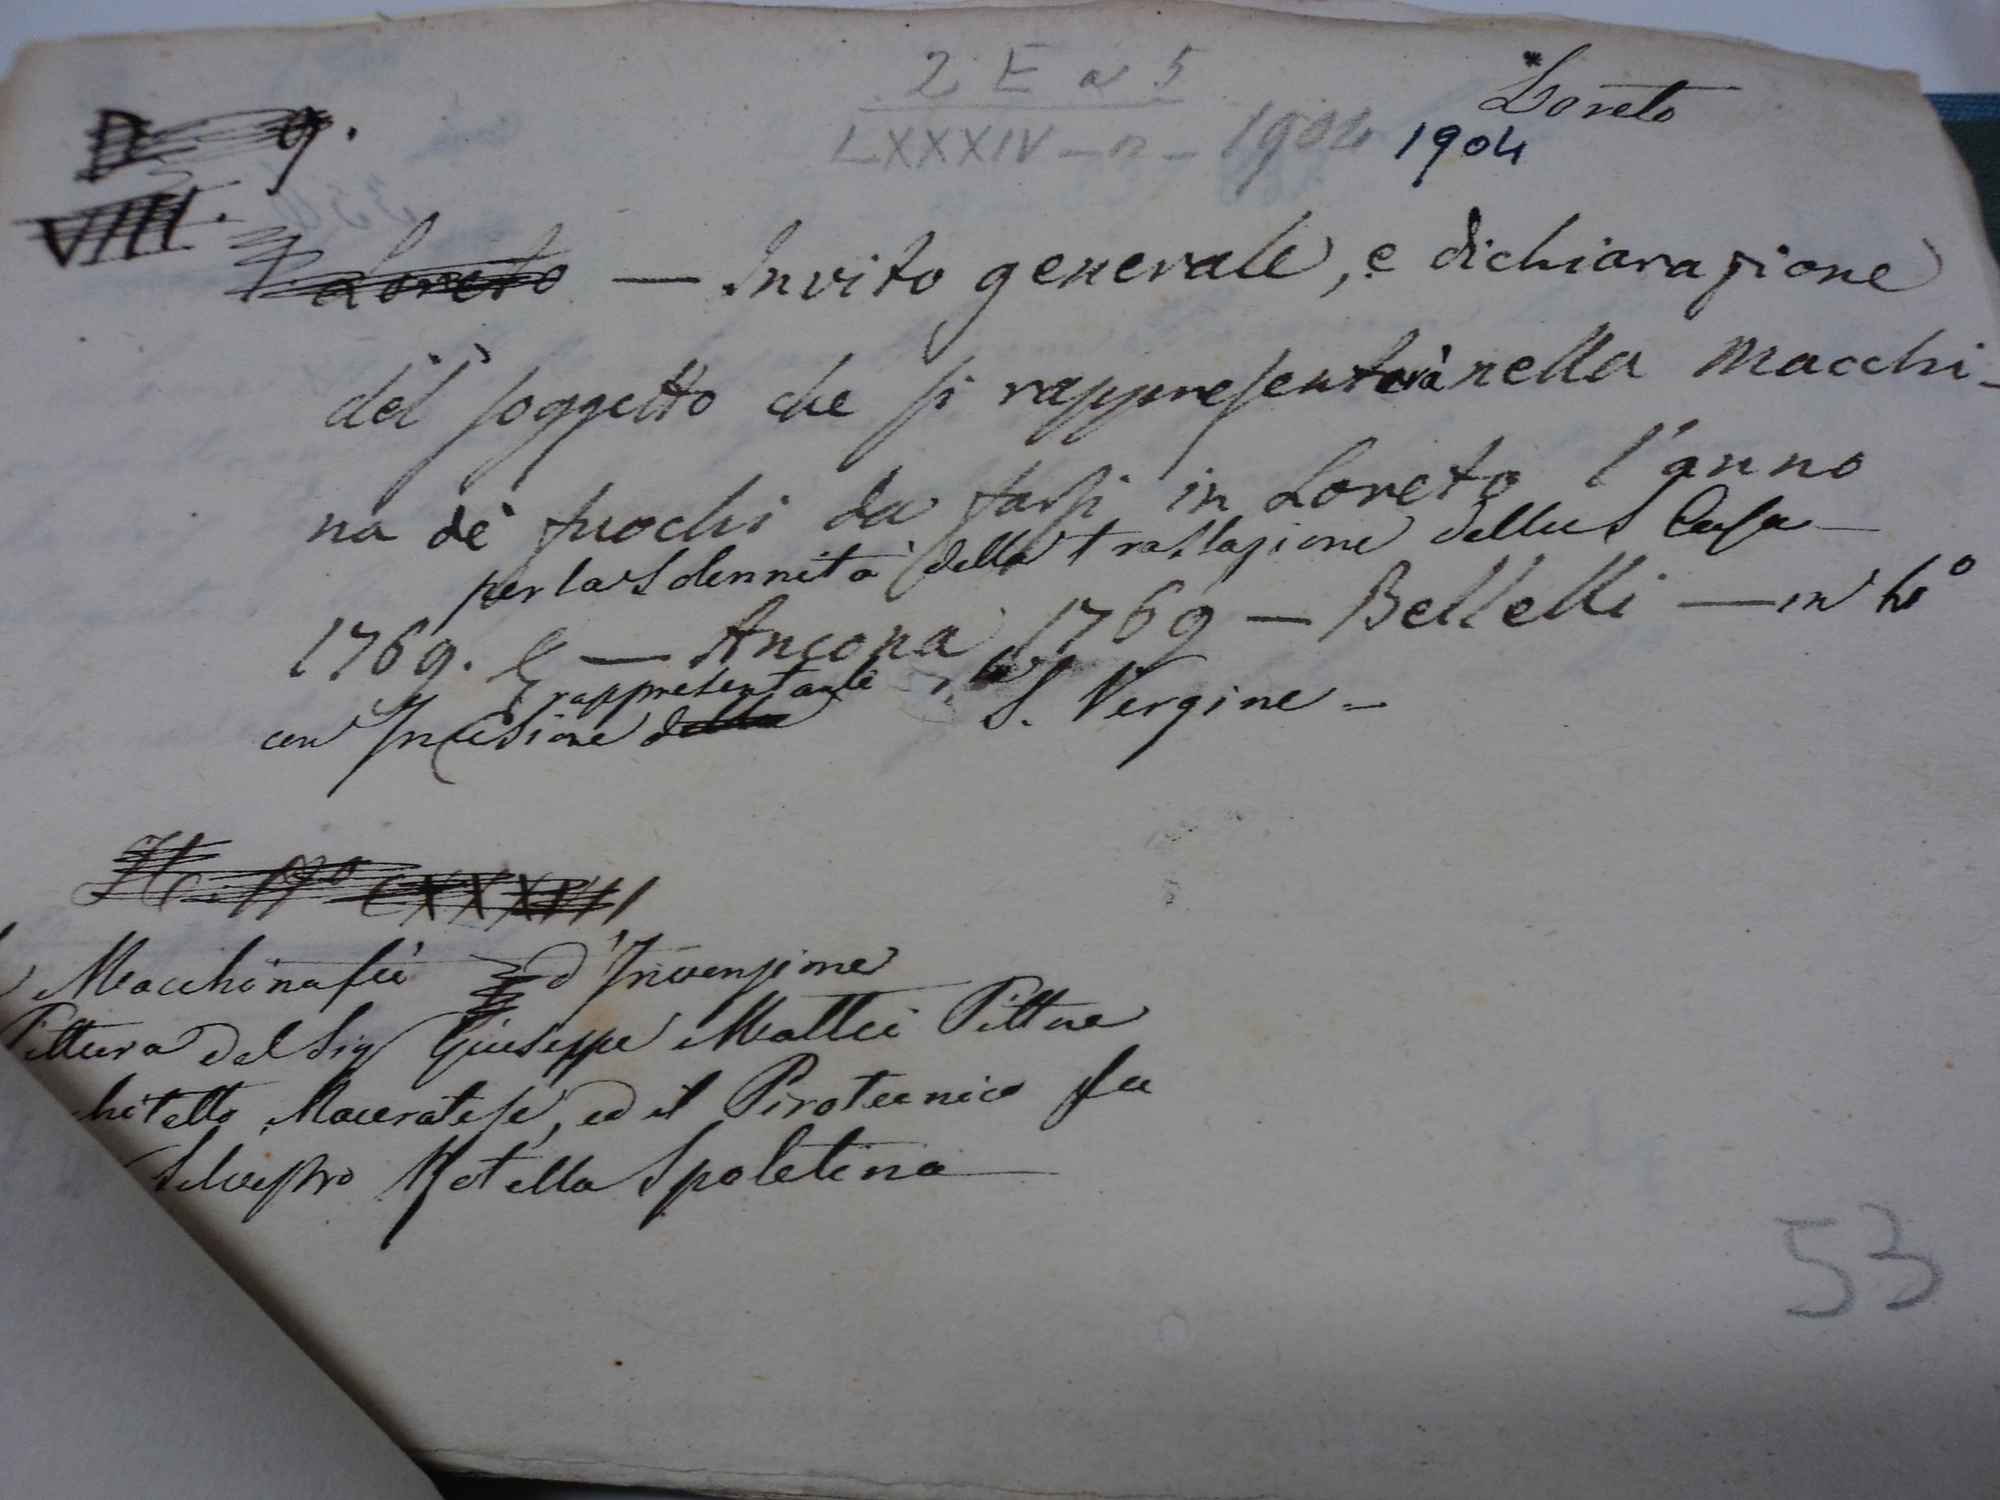 2 E a 5
*Loreto
LXXXIV - n - 1904 1904
9.
VIII.
Loreto — Invito generale, e dichiarazione
del soggetto che si rappresenterà nella Macchi-
na de' fuochi da farsi in Loreto l'anno
per la Solennità della traslazione della S. Casa —
1769. — Ancona 1769 — Bellelli — in 4°
rappresentante la
con Incisione della S. Vergine -
Macchina fu d'Invenzione
Pittura del Sig Giuseppe Mattei Pittore
hitetto Maceratese, ed il Pirotecnico fu
Silvestro Rotella Spoletino
53